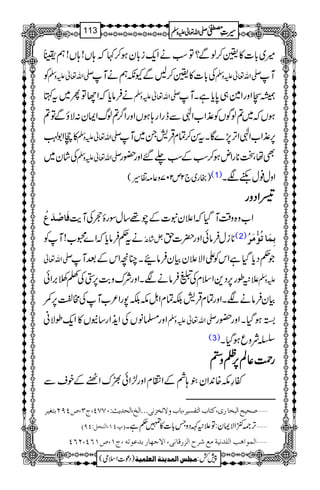 سیرت مصطفیٰ صلی اللہ تعالیٰ علیہ وسلم 113
میری بات کا یقین کرلو گے؟ تو سب نے ایک زبان ہو کر کہا کہ ہاں! ہاں! ہم یقیناً
آپ صلی اللہ تعالیٰ علیہ وسلم کی بات کا یقین کرلیں گے کیونکہ ہم نے آپ صلی اللہ تعالیٰ علیہ وسلم کو
ہمیشہ سچا اور امین ہی پایا ہے۔ آپ صلی اللہ تعالیٰ علیہ وسلم نے فرمایا کہ اچھا تو پھر میں یہ کہتا
ہوں کہ میں تم لوگوں کو عذاب الٰہی سے ڈرا رہا ہوں اور اگر تم لوگ ایمان نہ لاؤ گے تو تم
پر عذاب الٰہی اتر پڑے گا۔ یہ سن کر تمام قریش جن میں آپ صلی اللہ تعالیٰ علیہ وسلم کا چچا ابولہب
بھی تھا، سخت ناراض ہو کر سب کے سب چلے گئے اور حضور صلی اللہ تعالیٰ علیہ وسلم کی شان میں
اول فول بکنے لگے۔ (1) (بخاری ج۲ ص۷۰۲ وعامہ تفاسیر)
تیسرا دور
اب وہ وقت آ گیا کہ اعلان نبوت کے چوتھے سال سورۂ حجر کی آیت فَاصْدَعْ
بِمَا تُؤْمَرُ (2) نازل فرمائی اور حضرت حق جل شانہ نے یہ حکم فرمایا کہ اے محبوب! آپ کو
جو حکم دیا گیا ہے اس کو علی الاعلان بیان فرمائیے۔ چنانچہ اس کے بعد آپ صلی اللہ تعالیٰ
علیہ وسلم علانیہ طور پر دین اسلام کی تبلیغ فرمانے لگے۔ اور شرک و بت پرستی کی کھلم کھلا برائی
بیان فرمانے لگے۔ اور تمام قریش بلکہ تمام اہل مکہ بلکہ پورا عرب آپ کی مخالفت پر کمر
بستہ ہو گیا۔ اور حضور صلی اللہ تعالیٰ علیہ وسلم اور مسلمانوں کی ایذا رسانیوں کا ایک طولانی
سلسلہ شروع ہو گیا۔ (3)
رحمت عالم پر ظلم و ستم
کفار مکہ خاندان بنو ہاشم کے انتقام اور لڑائی بھڑک اٹھنے کے خوف سے
صحیح البخاری، کتاب التفسیر، باب ولاتخزنی...الخ، الحدیث: ۴۷۷۰، ج۳، ص۲۹۴ بتغیر
ترجمۂ کنزالایمان: تو علانیہ کہہ دو جس بات کا تمہیں حکم ہے۔ (پ۱۴، الحجر: ۹۴)
المواهب اللدنية مع شرح الزرقانی، الاجهار بدعوته، ج۱، ص۴۶۱، ۴۶۲
پیش کش: مجلس المدینة العلمیة (دعوت اسلامی)